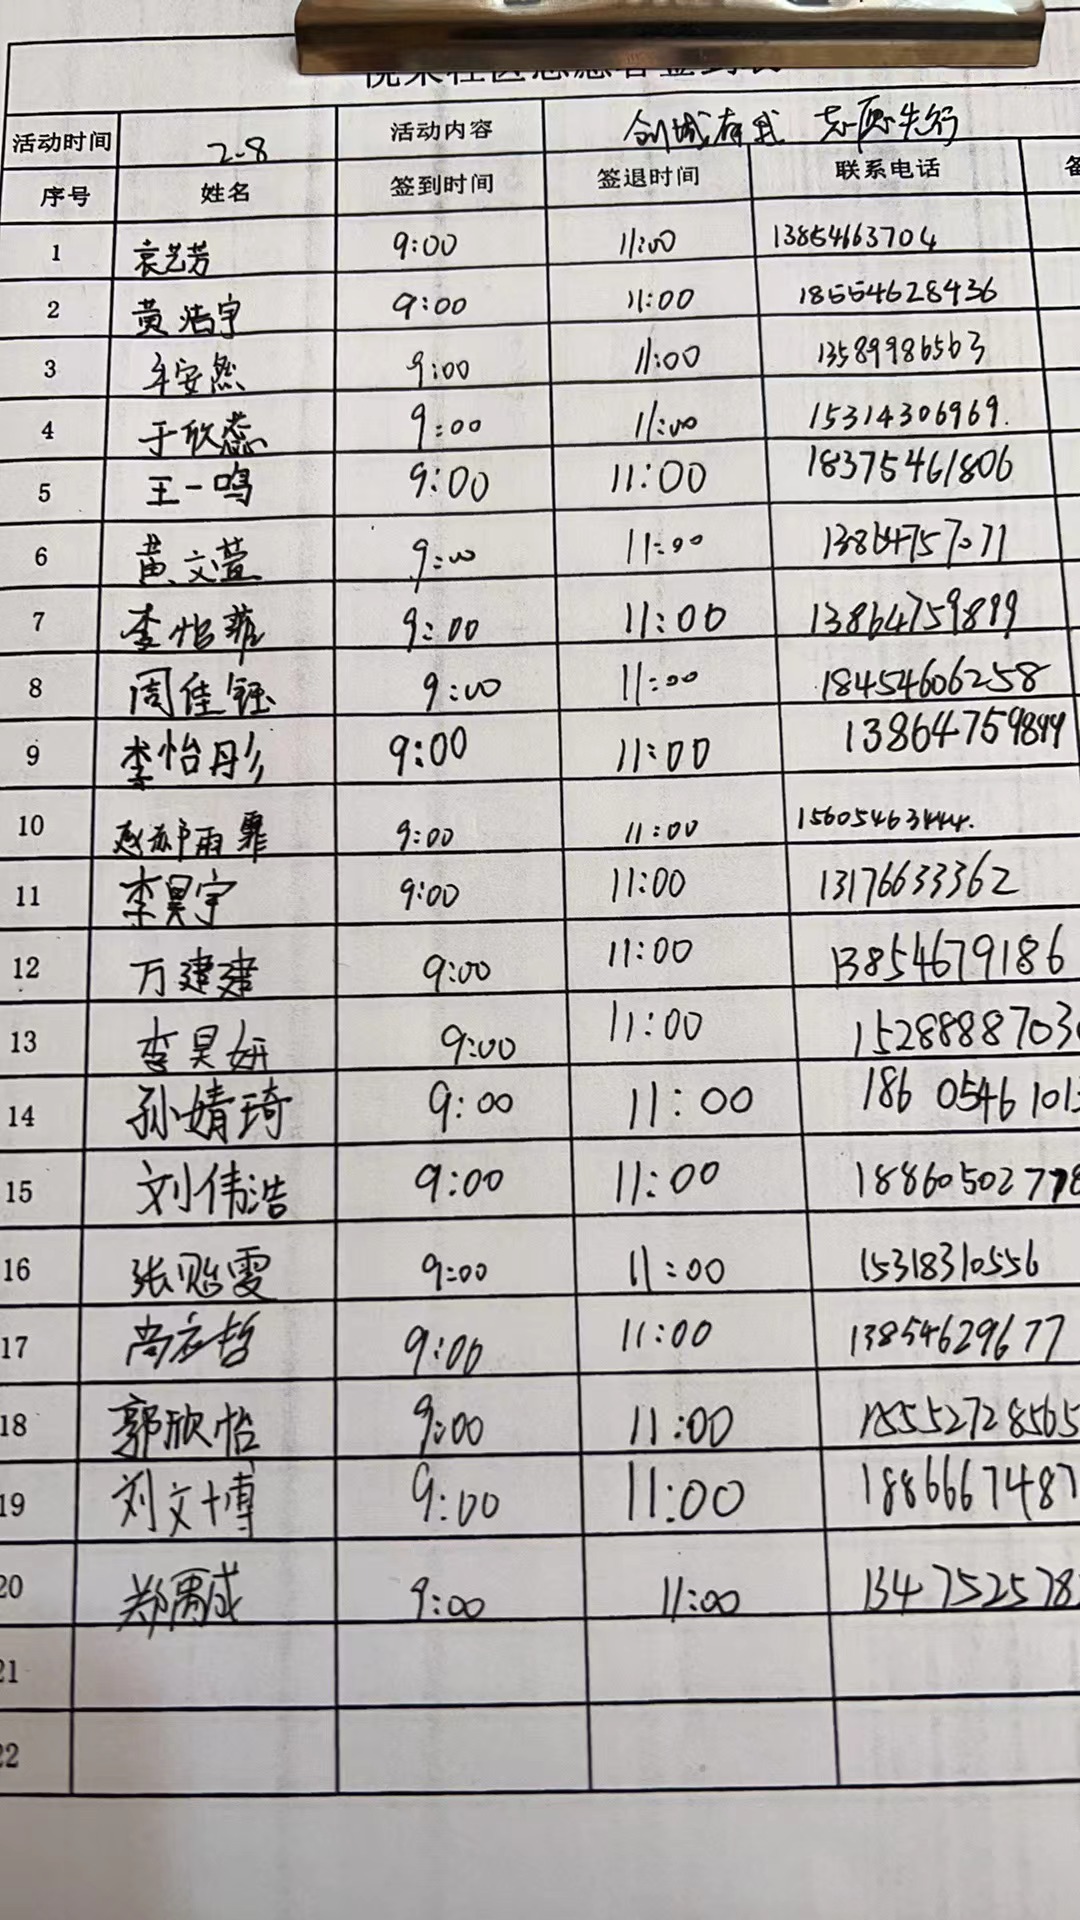 社区志愿者签到表
活动时间 2-8 活动内容 创城有我 志愿先行
序号 姓名 签到时间 签退时间 联系电话
1 袁艺芳 9:00 11:00 13854663704
2 黄浩宇 9:00 11:00 18554628436
3 牟安然 9:00 11:00 13589986563
4 于欣蕊 9:00 11:00 15314306969.
5 王一鸣 9:00 11:00 18375461806
6 黄文萱 9:00 11:00 13864757071
7 李怡菲 9:00 11:00 13864759899
8 周佳钰 9:00 11:00 18454606258
9 李怡彤 9:00 11:00
10 赵郝雨霏 9:00 11:00 15605463444.
11 李昊宇 9:00 11:00 13176633362
12 万建建 9:00 11:00 13854679186
13 李昊妍 9:00 11:00 1528888703
14 孙婧琦 9:00 11:00 186 0546 101
15 刘伟浩 9:00 11:00 18860502778
16 张贻雯 9:00 11:00 15318310556
17 尚宏哲 9:00 11:00 13854629677
18 郭欣怡 9:00 11:00 15552728565
19 刘文博 9:00 11:00 1886667487
20 郑禹成 9:00 11:00 134752578
21
22